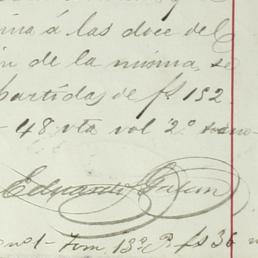 á las doce del
ón de la misma, se
partidas de fs 152
- 48 vta vol 2º
Eduardo
Tom 13º P. fs 36